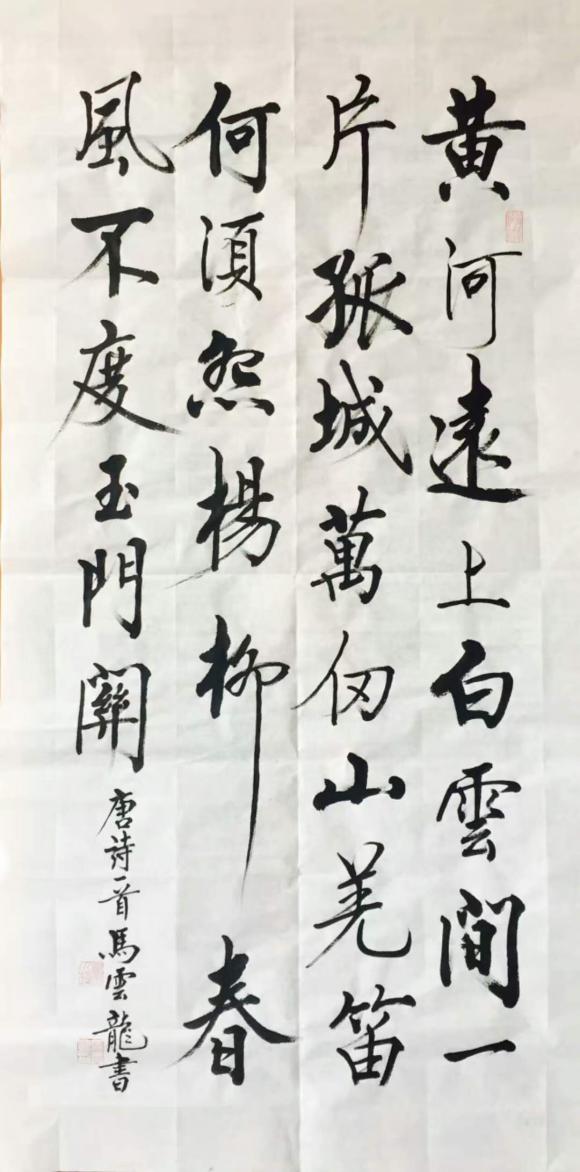 黄河遠上白雲間一
片孤城萬仞山羌笛
何須怨楊柳春
風不度玉門關
唐詩一首馬雲龍書